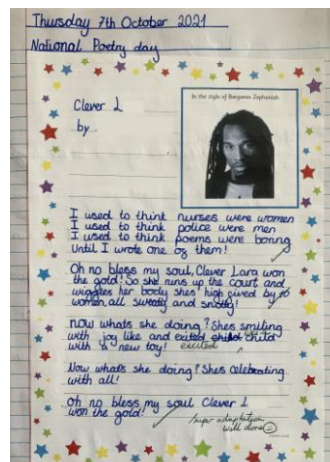 Thursday 7th October 2021
National Poetry day
In the style of Benjamin Zephaniah
Clever L
by
I used to think nurses were women
I used to think police were men
I used to think poems were boring
Until I wrote one of them!
Oh no bless my soul, Clever Lara won
the gold! So she runs up the court and
wiggles her body shes high gived by 16
women, all sweaty and snotty!
now whats she doing? Shes smiling
with joy like and child
with a new toy! excited
Now whats she doing? Shes celebrating
with all!
oh no bless my soul Clever L
won the gold!
Super adaptation
well done